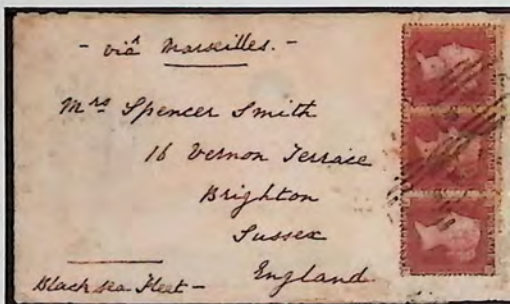 - viâ Marseilles. -
Mrs Spencer Smith
16 Vernon Terrace
Brighton
Sussex
England
Black Sea Fleet -